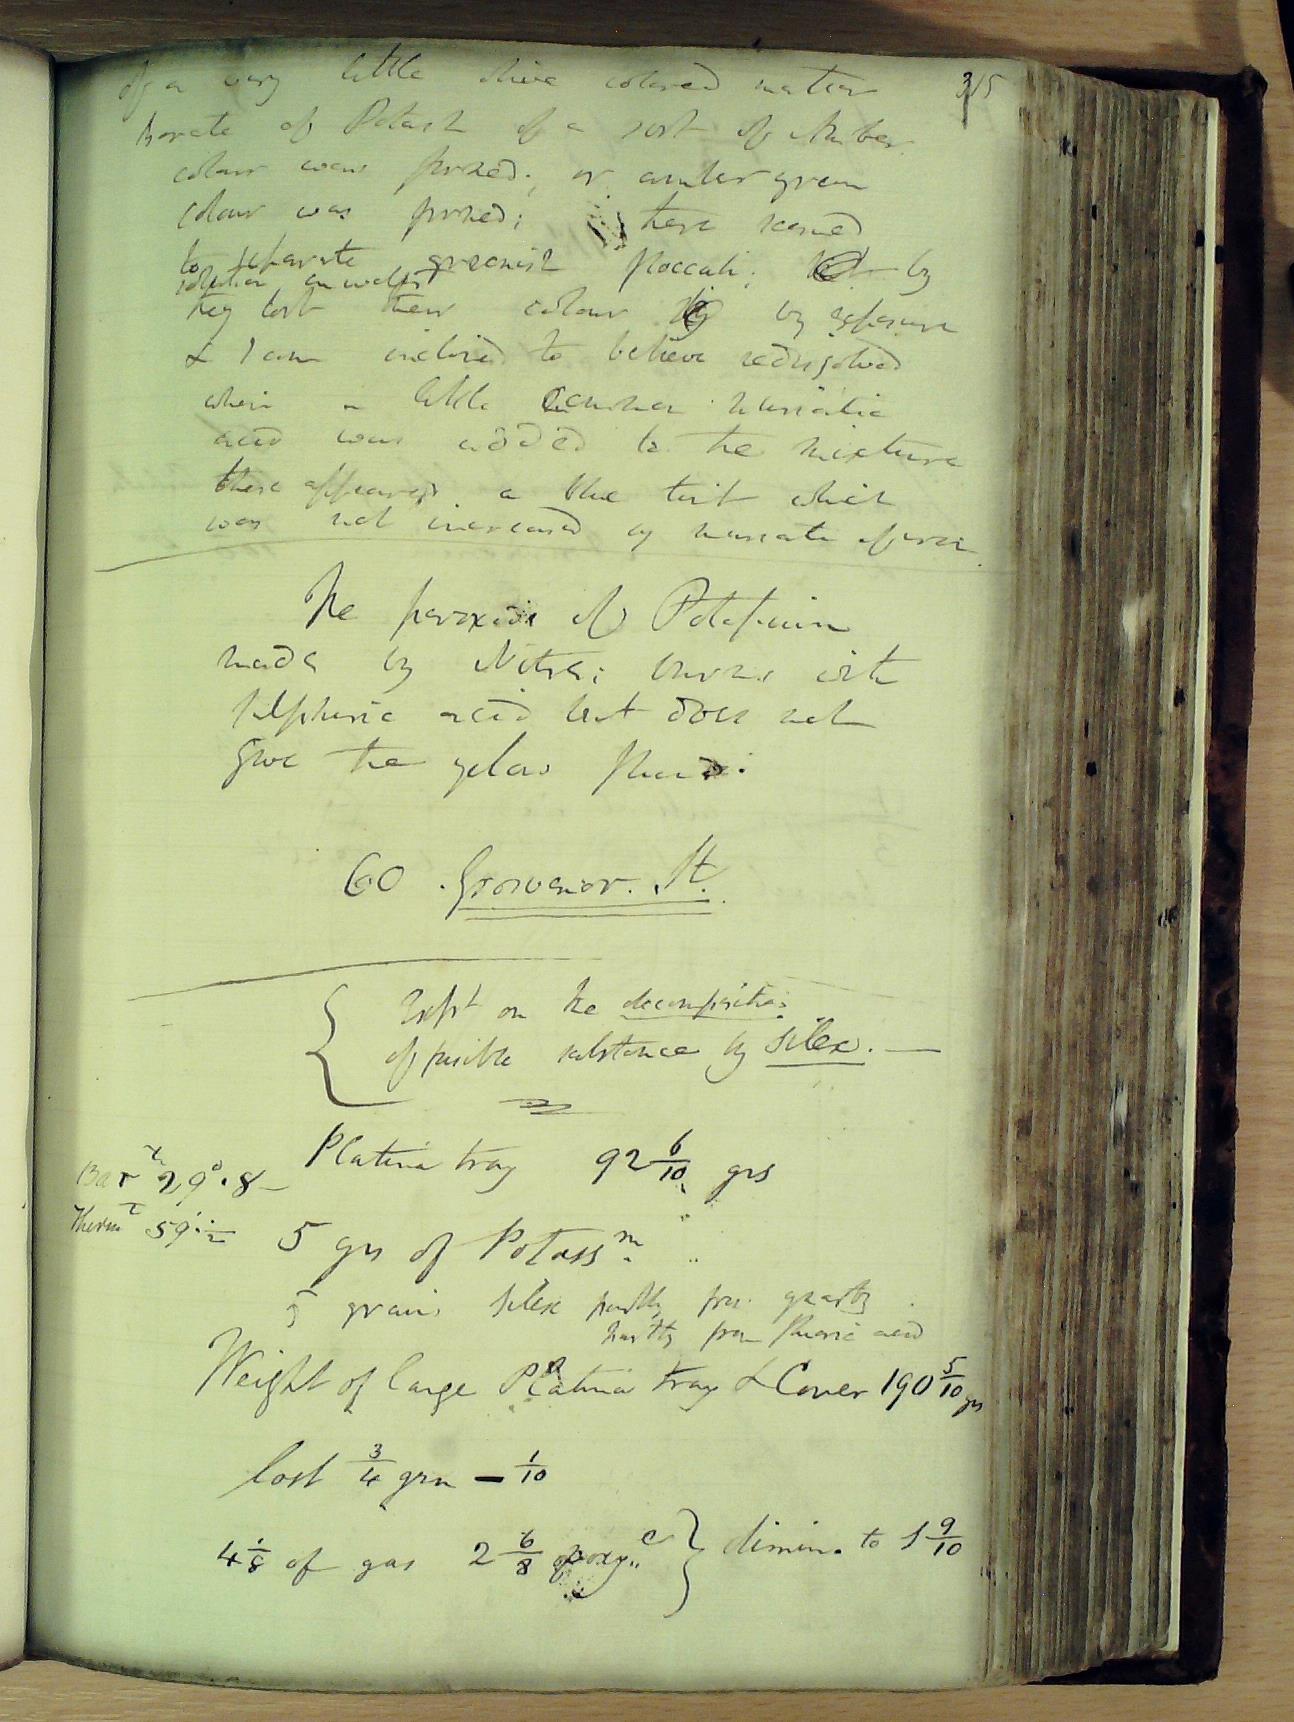 315
of a very little olive colored matter
Borate of Potash of a sort of Amber
colour was formed; or amber green
colour was formed; there seemed
to separate greenish flocculi; by
solution in water
they lost their colour by exposure
& I am inclined to believe redissolved
when a little common muriatic
acid was added to the mixture
there appeared a blue tint which
was not increased by muriate of iron
The peroxide of Potassium
made by Nitre; burns with
Sulphuric acid but does not
give the yelow fluid.
60 Grosvenor. St.
Expt on the decomposition
of fusible substance by silex. —
Platina tray 92 6/10 grs
Bar r 29°.8 —
Therm r 59 1/2
5 grs of Potass m
5 grains Silex partly from quartz
partly from fluoric acid
Weight of large Platina tray & Cover 190 5/10 grs
lost 3/4 grn – 1/10
4 1/8 of gas 2 6/8 of oxy.. e } dimin. to 1 9/10